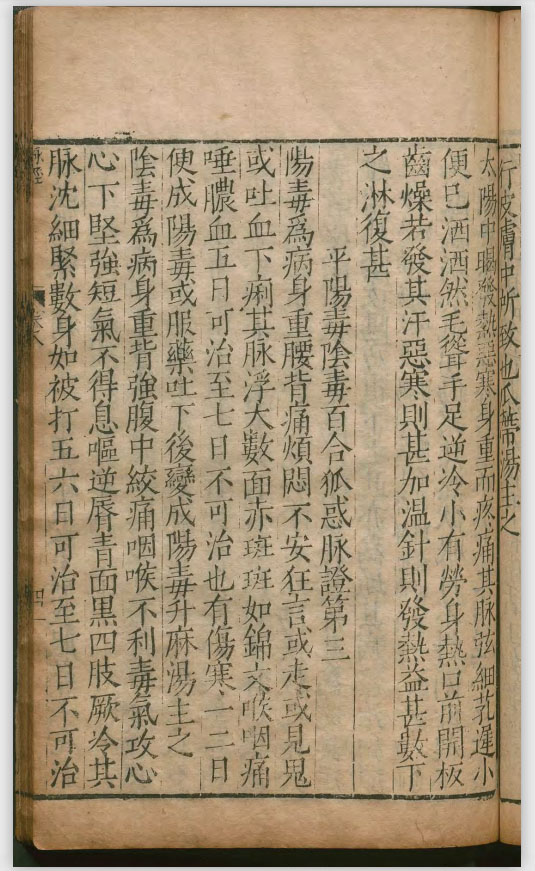 行皮膚中所致也瓜蒂湯主之
太陽中暍發熱惡寒身重而疼痛其脉弦細芤遲小
便已洒洒然毛聳手足逆冷小有勞身熱口前開板
齒燥若發其汗惡寒則甚加温針則發熱益甚數下
之淋復甚
平陽毒陰毒百合狐惑脉證第三
陽毒為病身重腰背痛煩悶不安狂言或走或見鬼
或吐血下痢其脉浮大數面赤斑斑如錦文喉咽痛
唾膿血五日可治至七日不可治也有傷寒一二日
便成陽毒或服藥吐下後變成陽毒升麻湯主之
陰毒為病身重背強腹中絞痛咽喉不利毒氣攻心
心下堅強短氣不得息嘔逆脣青面黑四肢厥冷其
脉沈細緊數身如被打五六日可治至七日不可治
脉經
卷八
四